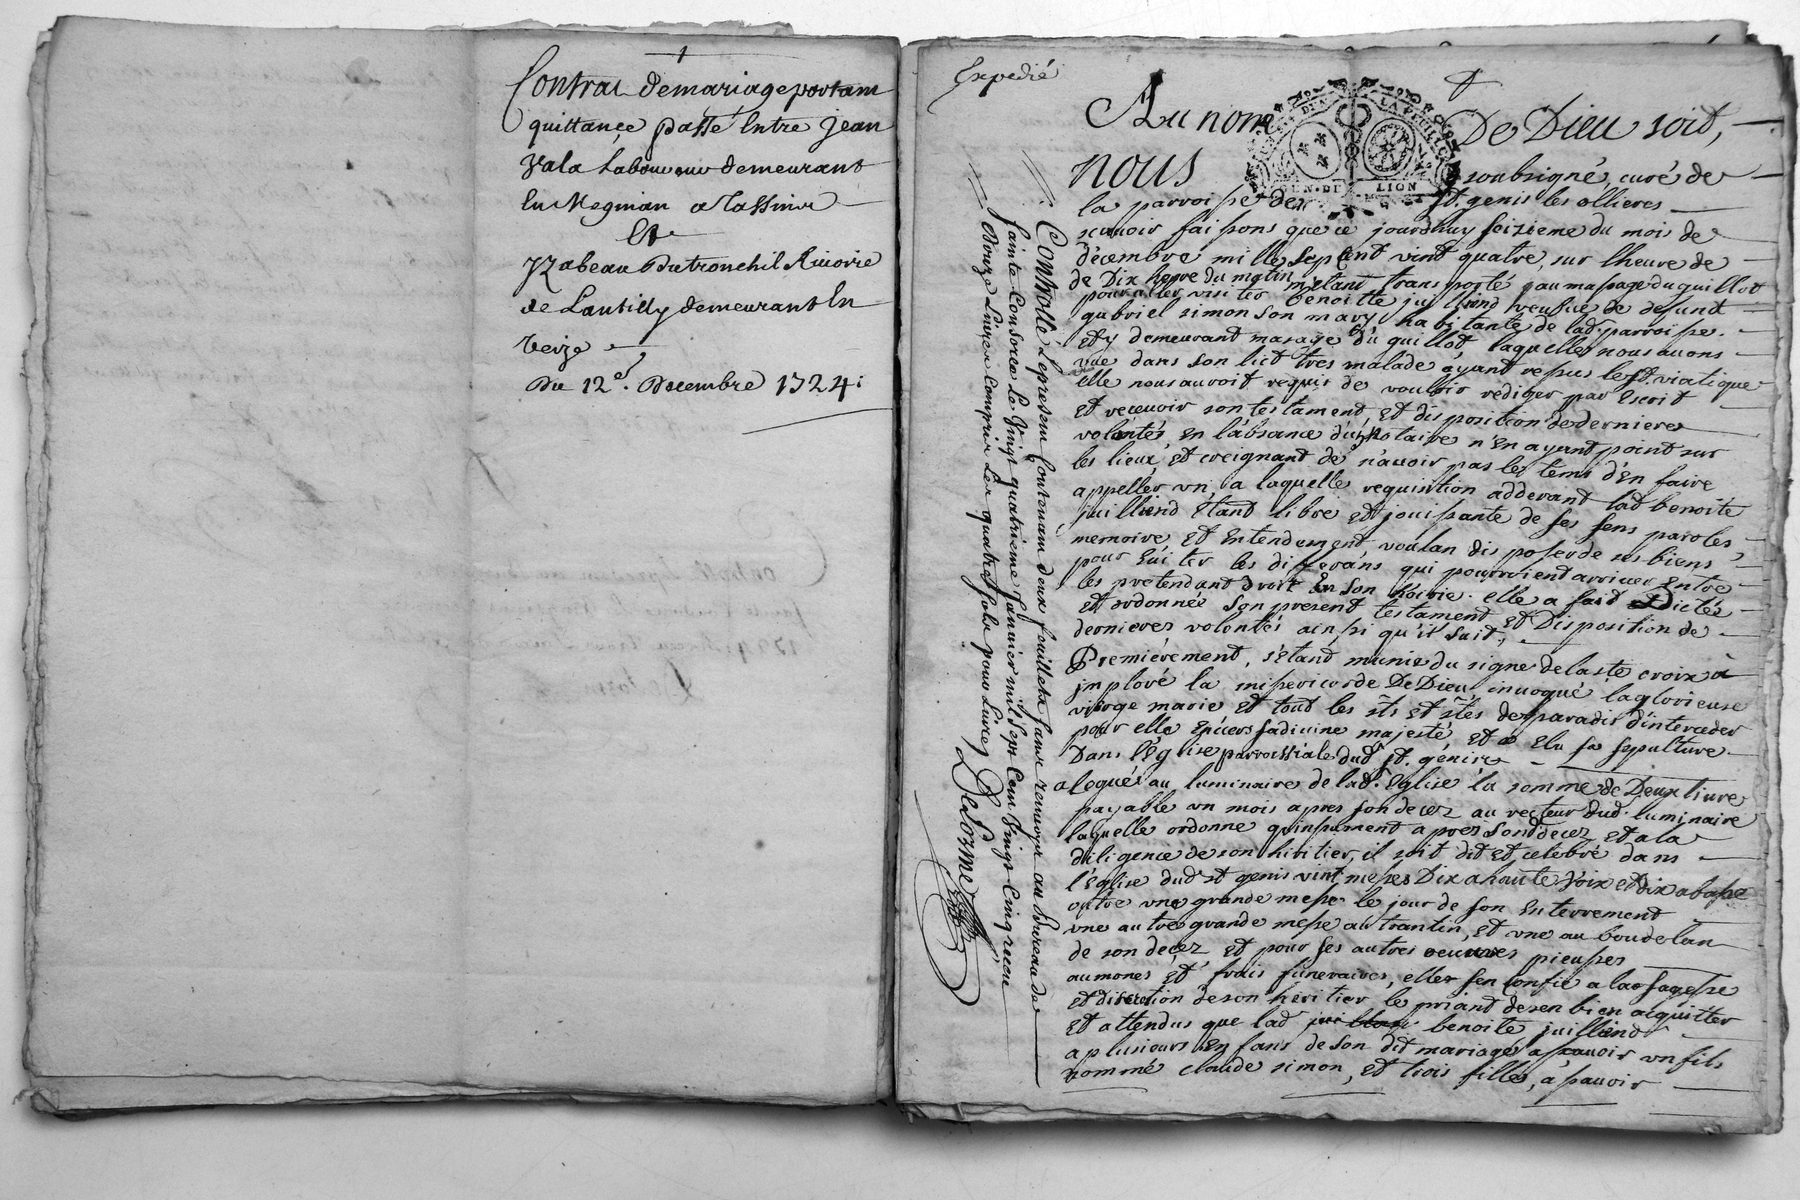 Contrat de mariage portant
quittance passé Entre Jean
yala Laboureur demeurant
En Megnian a Tassin
Et
yzabeau Dutronchil
de Lantilly demeurant En
Veize
Du 12e. Decembre 1724
Expedié
Au nom De Dieu soit,
nous soubsigné, curé de
la parroisse de st. genis les ollieres
scavoir faisons que ce jourdhuy seizieme du mois de
décembre mille sept cent vint quatre, sur lheure de
de Dix heure du matin m'étant transporté au massage du guillot
pour aller visiter benoitte juilliend veufue de defunt
gabriel simon son mary habitante de lad. parroisse.
Et y demeurant masage du guillot, laquelle nous auons
vue dans son lict tres malade ayant repus le st. viatique
elle nous auroit requis de vouloir rediger par Escrit
Et receuoir son testament, et disposition de derniere
volontés, en l'absance d'un Notaire n'en ayant point sur
les lieux, et creignant de n'auoir pas le tems d'En faire
appeller vn, a laquelle requisition adderant lad benoite
juilliend Etant libre et jouissante de ses sens paroles
memoire et Entendement, voulan disposer de ses biens
pour Euiter les differans qui pourroient arriuer Entre
les pretendant droit En son hoirie. elle a fait Dictés
et ordonnée son present testament et Disposition de
dernieres volontés ainsi qu'il suit,
Premiérement, s'Etant munie du signe de la ste croix a
jmploré la misericorde De Dieu, inuoqué la glorieuse
vierge marie et tout les sts et stes de paradis d'interceder
pour elle Epuers sa diuine majesté, et a Elu sa sepulture
Dans l'église parroissiale dud. st. génis
a Legué au luminaire de lad. Eglise la somme de Deux liure
payable vn mois apres son decez au recteur dud. luminaire
laquelle ordonne quinssament aprez son decez et a la
diligence de son hiritier, il soit dit et celebré dans
l'Eglise dud st genis vint messes Dix a haute voix et dix a basse
outre vne grande messe le jour de son Enterrement
vne autre grande messe au trantin, et vne au bou de lan
de son decez, et pour ses autres oeuures pieuses
aumones et frais funeraires, elle s'en confie a la sagesse
et discretion de son heritier le priant de s'en bien acquitter
Et attendus que lad benoite juilliend
a plusieurs Enfans de son dit mariage a scauoir vn fils
nommé claude simon, et trois filles, a scauoir
Controllé Le present Contenant deux feuillets sans renuoyer au Bureau de
sainte Consorce Le Vingt quatrieme Januier mil sept Cent Vingt Cinq reçu
Douze Liures compris Les quatre sols pour Liure Delorme